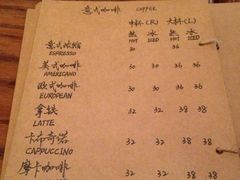 意式咖啡 COFFEE
中杯(R) 大杯(L)
热 冰 热 冰
HOT ICED HOT ICED
意式浓缩 30 36
ESPRESSO
美式咖啡 30 30 36 36
AMERICANO
欧式咖啡 30 30 36 36
EUROPEAN
拿铁 32 32 38 38
LATTE
卡布奇诺 32 32 38 38
CAPPUCCINO
摩卡咖啡 32 32 38 38